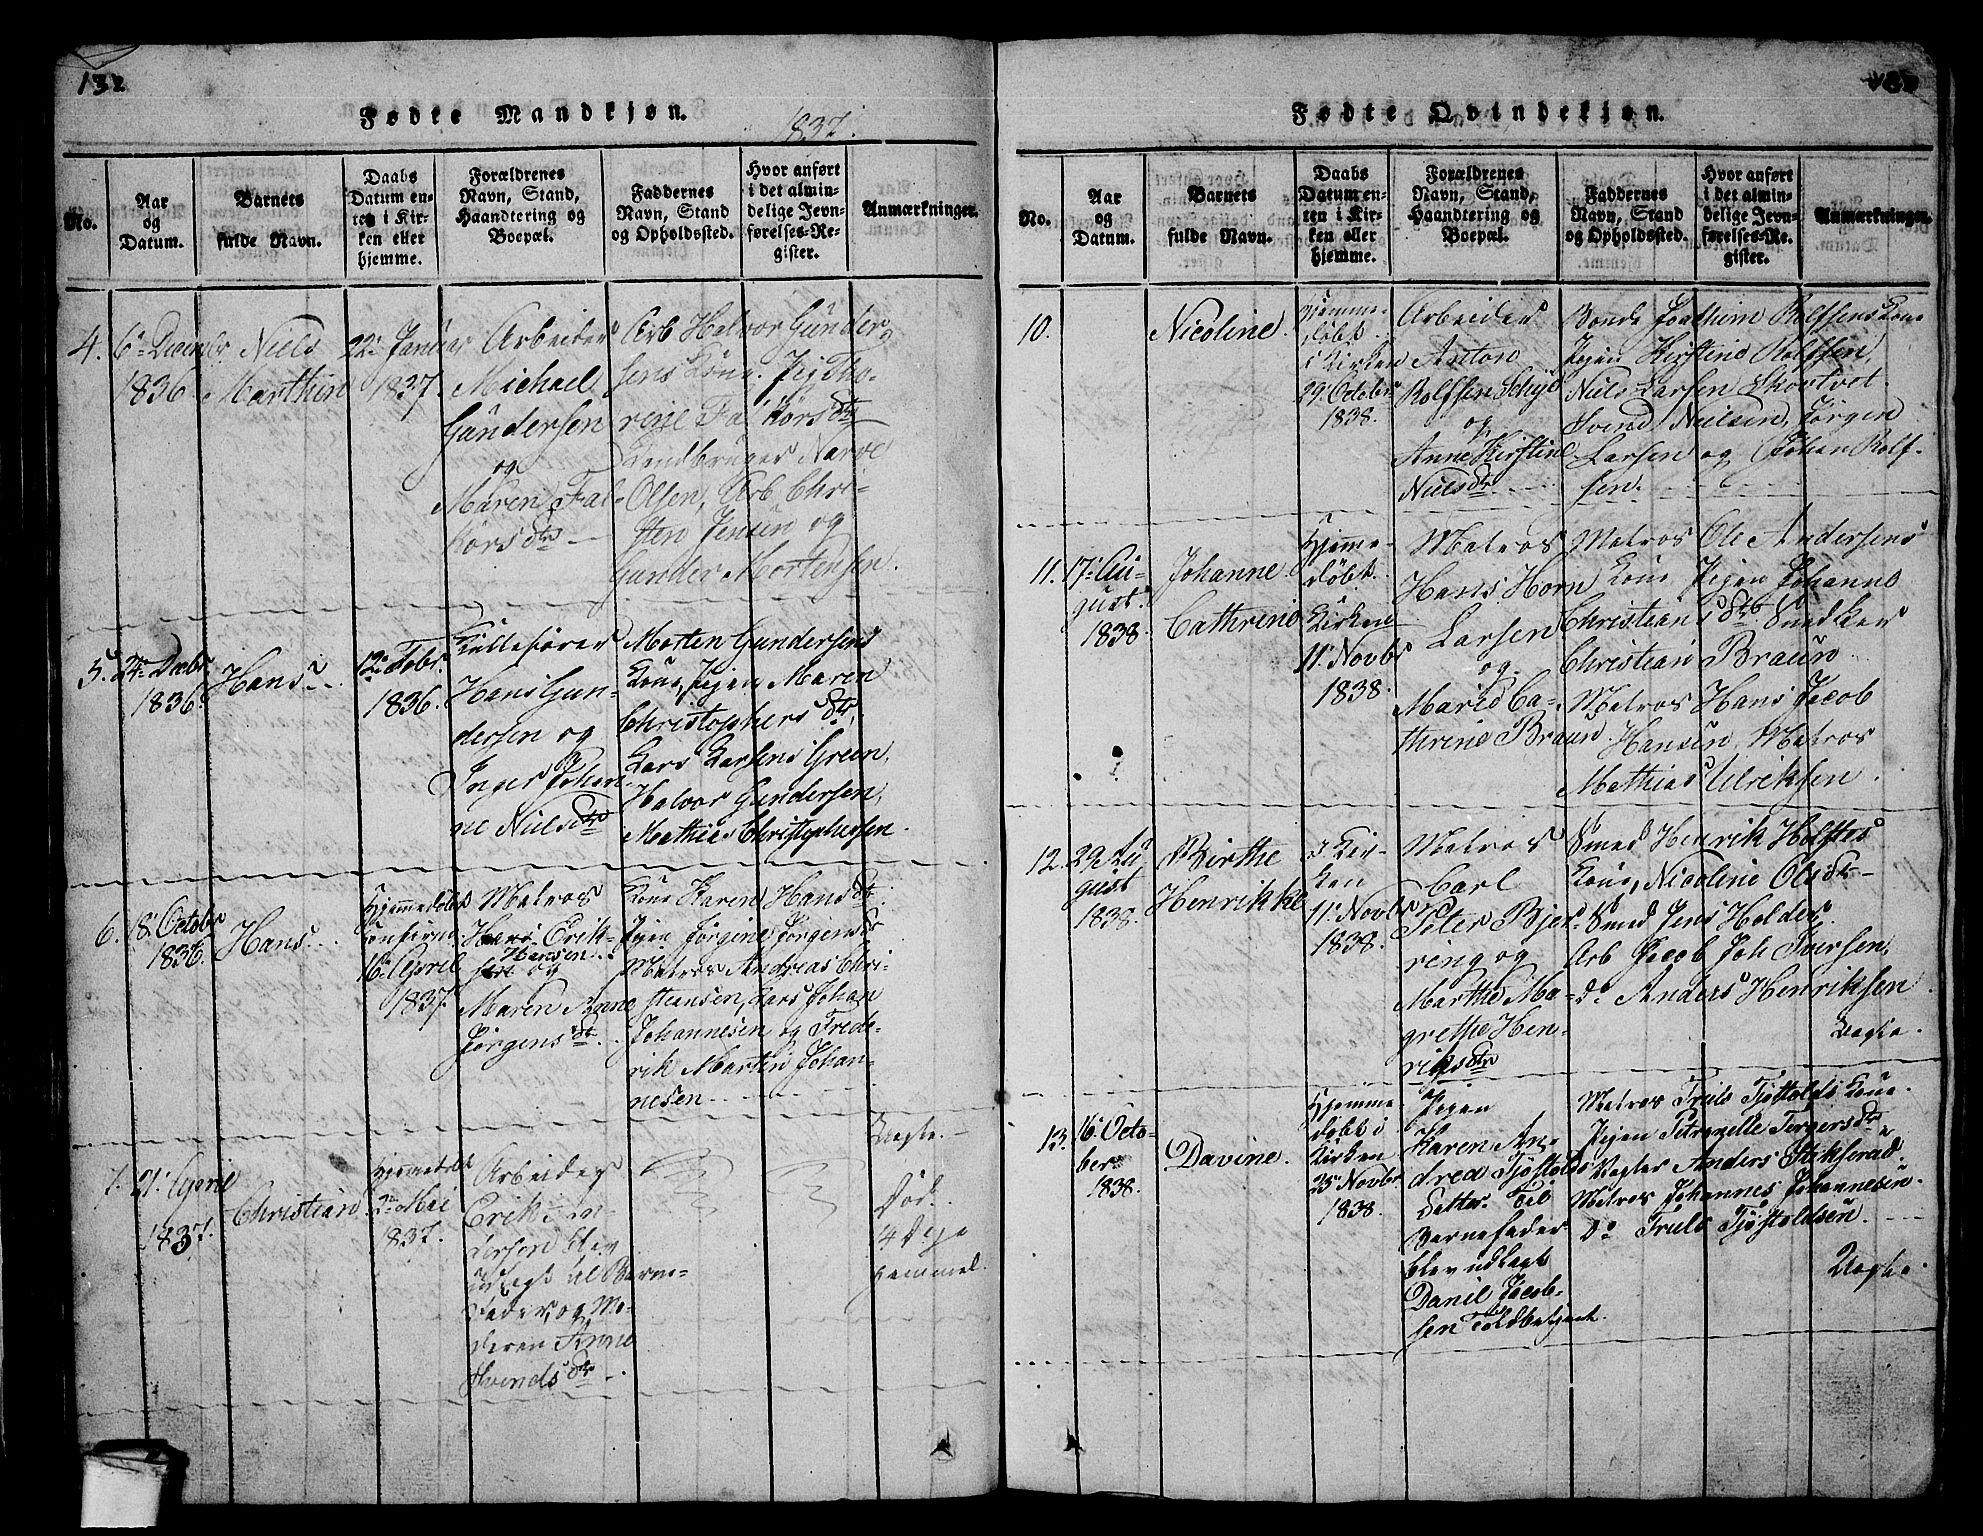 132
Fødte Mandkjøn.
1837.
No.
Aar
og
Datum.
Barnets
fulde Navn.
Daabs
Datum en-
ten i Kir-
ken eller
hjemme.
Forældrenes
Navn, Stand,
Haandtering og
Boepæl.
Faddernes
Navn, Stand
og Opholdssted.
Hvor anført
i det almin-
delige Jevn-
førelses-Re-
gister.
Anmærkninger.
4.
6te Decembr
1836.
Niels
Marthin
22de Januar
1837.
Arbeider
Michael
Gundersen
og
Maren Fal-
korsdtr
Arb Halvor Gunder
sens Kone. Pigen Tho-
rine Falkorsdtr
Landbruger Narve
Olsen, Arb Chri-
sten Jensen og
Gunder Mortensen.
5.
24de Decbr
1836.
Hans.
12te Febr.
1836.
Hans Gun-
dersen og
Inger Johan-
ne Nielsdtr
Morten Gundersens
Kone, Pigen Maren
Christophersdtr,
Lars Larsens Green,
Halvor Gundersen,
Mathias Christophersen.
6.
8de Octobr
1836.
Hans.
Hjemmedøbt
16de April
1837.
Matros
Hans Erik-
sen Hansen og
Maren Anne
Jørgensdtr.
Kone Karen Hansdtr
Pigen Jørgine Jørgensdtr
Matros Andreas Chri-
stiansen, Lars Johan
Johannesen og Frede-
rik Martin Johan-
nesen
Uægte.
7.
21de April
1837.
Christian
Hjemmedøbt
2den Mai
1837.
Arbeider
Erik An-
dersen blev
udlagt til Barne-
fader, og Mo-
deren Anne
Svendsdtr.
Død.
4 Dage
gammel.
Fødte Qvindekjøn.
No.
Aar
og
Datum.
Barnets
fulde Navn.
Daabs
Datum en-
ten i Kir-
ken eller
hjemme.
Forældrenes
Navn, Stand,
Haandtering og
Boepæl.
Faddernes
Navn, Stand
og Opholdssted.
Hvor anført
i det almin-
delige Jevn-
førelses-Re-
gister.
Anmærkninger.
10.
Nicoline.
Hjemme-
døbt.
i Kirken
29. October
1838.
Arbeider
Anton
Rolfsen
og
Anne Kirstine
Nielsdtr.
Bonde Joachim Rolfsens Kone
Pigen Kirstine Rolfsen,
Niels Larsen
Svend Nielsen, Jørgen
Larsen og Johan Rolf-
sen.
11.
17de Au-
gust.
1838.
Johanne
Cathrine
Hjemme-
døbt.
Kirken
11te Novbr
1838.
Matros
Hans Horn
Larsen
og
Marie Ca-
thrine Braun
Matros Ole Andersens
Kone Pigen Johanne
Christiansdtr. Snedker
Christian Braun
Matros Hans Jacob
Hansen, Matros
Mathias Ulriksen.
12.
29 Au
gust
1838.
Birthe
Henrikke
i Kir-
ken
11te Novbr
1838.
Matros
Carl
Peter Bjer-
ring og
Marthe Ma-
grethe Hen-
riksdtr
Smed Henrik Holstes
Kone, Nicoline Olsdtr
Smed Jens Holder.
Arb Jacob Joh Iversen,
do Anders Henriksen.
Uægte.
13.
16de Octo-
ber
1838.
Davine.
Hjemme
døbt i
Kirken
25de Novbr
1838.
Pigen
Karen An-
drea Tjøstolds
Datter. Til
Barnefader
blev udlagt
Danil Jacob-
sen Toldbetjent.
Matros Truls Tjøstolds Kone.
Pigen Petronelle Tergersdtr
Anders
Matros Johannes Johannesen.
Do Truls Tjøstoldsen.
Uægte.